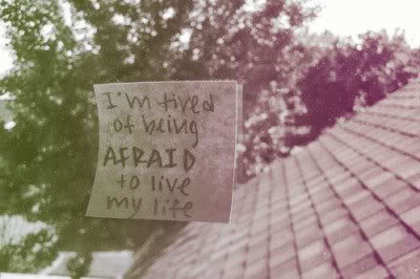 I'm tired
of being
AFRAID
to live
my life